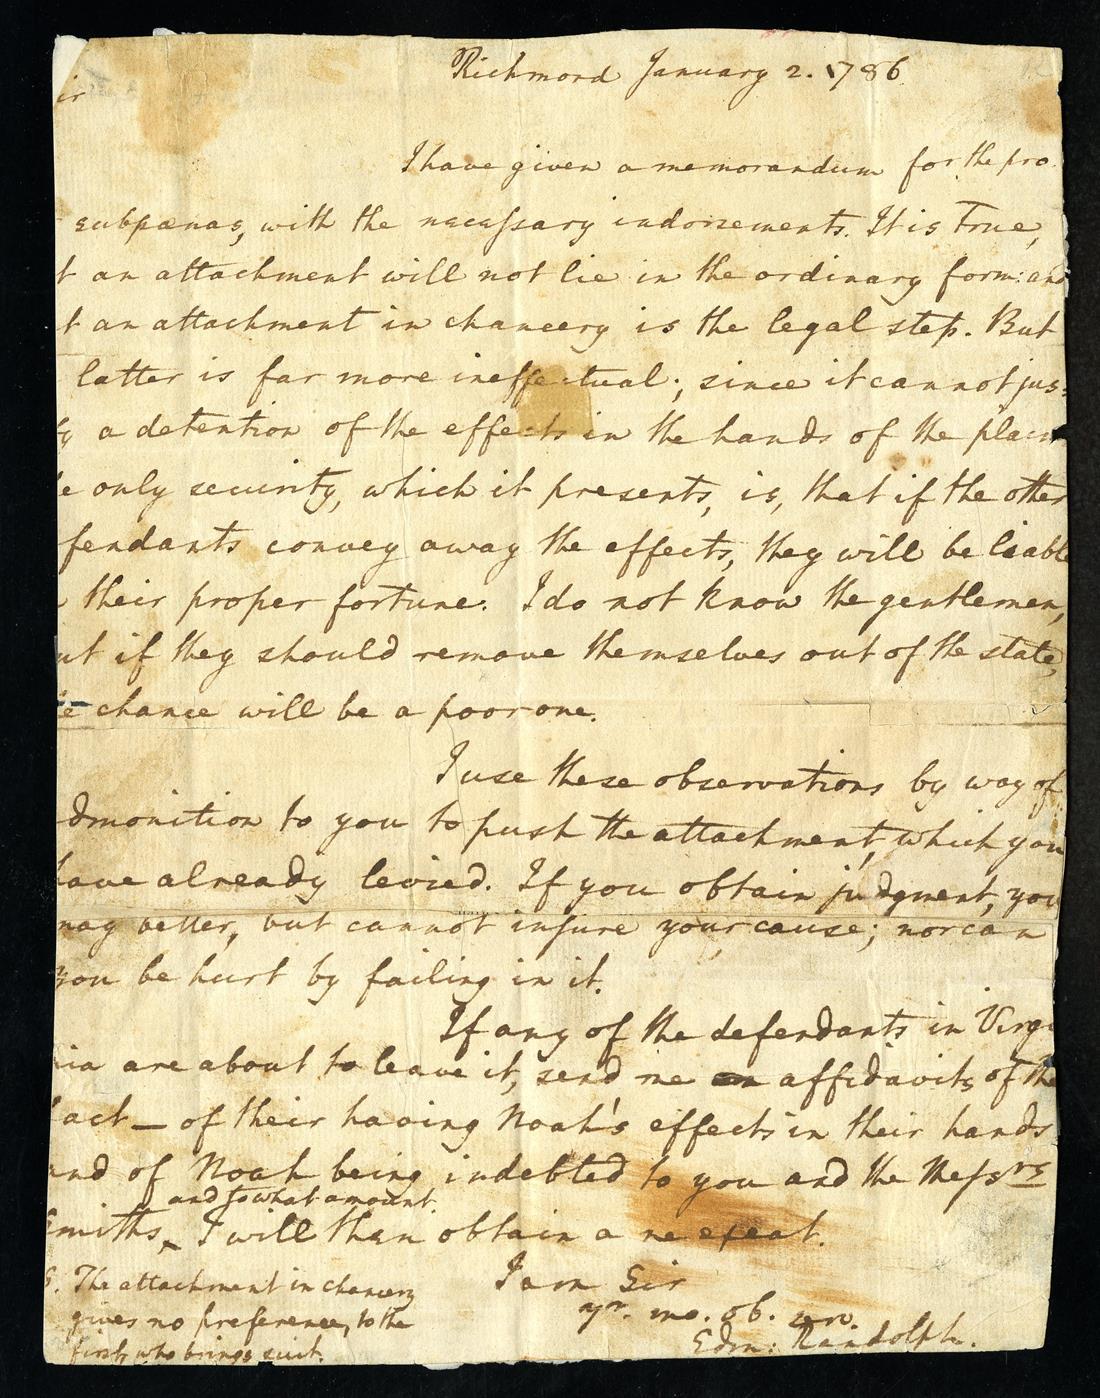 Richmond January 2. 1786.
ir
I have given a memorandum for the pro
subpœnas, with the necessary indorsements. It is true,
t an attachment will not lie in the ordinary form: and
t an attachment in chancery is the legal step. But
latter is far more ineffectual; since it cannot jus=
fy a detention of the effects in the hands of the plain
e only security, which it presents, is, that if the other
fendants convey away the effects, they will be liable
their proper fortune. I do not know the gentlemen,
ut if they should remove themselves out of the state,
e chance will be a poor one.
I use these observations by way of
dmonition to you to push the attachment, which you
have already levied. If you obtain judgment, you
may better, but cannot injure your cause; nor can
you be hurt by failing in it.
If any of the defendants in Virgi
nia are about to leave it, send me affidavits of the
fact — of their having Noah's effects in their hands
and of Noah being indebted to you and the Messrs
and to what amount.
Smiths ^ I will then obtain a ne exeat.
I am Sir
yr. mo. ob. serv.
Edm: Randolph.
S. The attachment in chancery
gives no preference, to the
first, who brings suit.